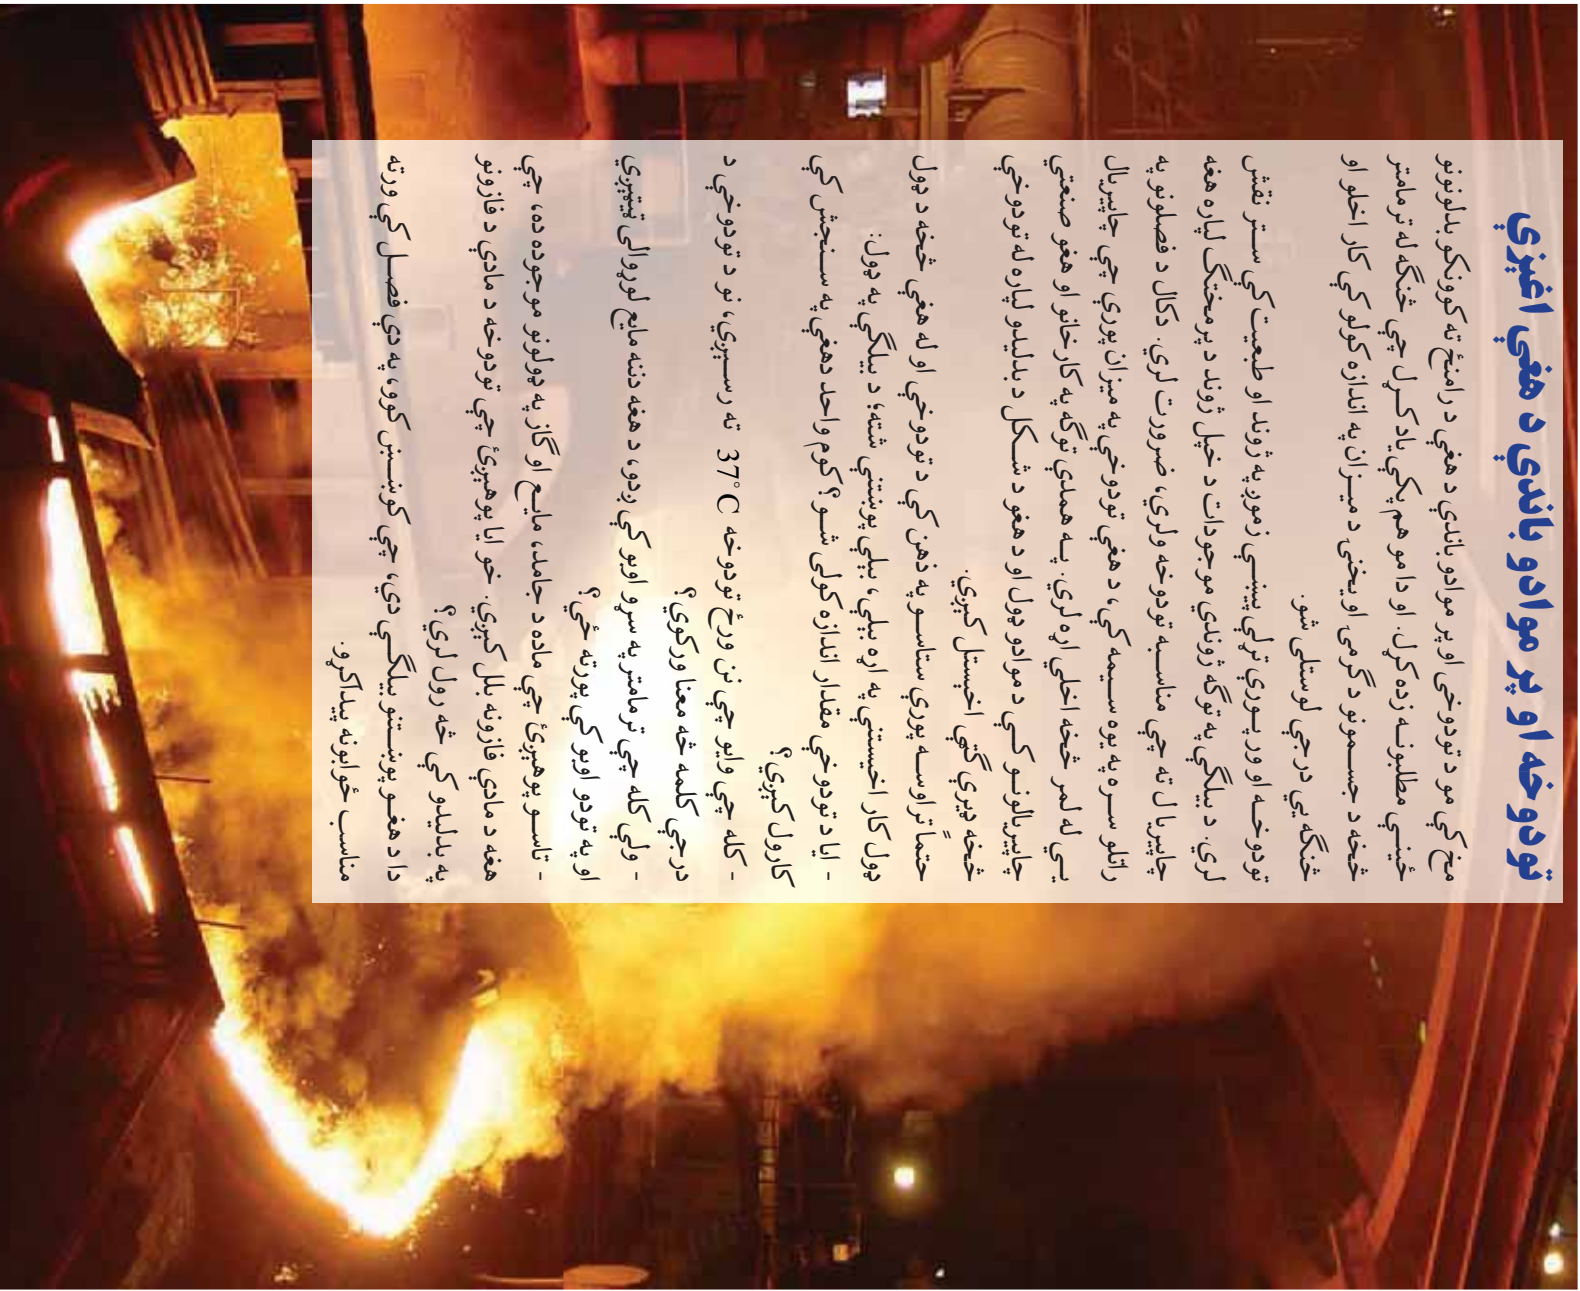 تودوخه او پر موادو باندې د هغې اغېزې
مخ کې مو د تودوخې او پر موادو باندې د هغې د رامنځ ته کوونکو بدلونونو
ځينـې مطلبونـه زده کړل. او دا مو هم پکې ياد کـړل چې څنګه له ترمامتر
څخه د جســمونو د ګرمۍ او يخنۍ د ميـزان په اندازه کولو کې کار اخلو او
څنګه يې درجې لوستلی شو.
تودوخــه او ور پــورې تړلې پېښــې زموږ په ژوند او طبيعت کې ســتر نقش
لري. د بېلګې په توګه ژوندي موجودات د خپل ژوند د پرمختګ لپاره هغه
چاپيريال ته چې مناسـبه تودوخه ولري، ضرورت لري. دکال د فصلونو په
راتلو ســره په يوه ســيمه کې، د هغې تودوخې په ميزان پورې چې چاپيريال
يــې له لمر څخه اخلي اړه لري. پــه همدې توګه په کارخانو او هغو صنعتي
چاپيريالونــو کــې د موادو ډول او د هغو د شــکل د بدليدو لپاره له تودوخې
څخه ډېرې ګټې اخيستل کېږي.
حتماً تر اوســه پورې ستاســو په ذهن کې د تودوخې او له هغې څخه د ډول
ډول کار اخيستنې په اړه بېلې، بېلې پوښتنې شته؛ د بېلګې په ډول:
- ايا د تودوخې مقدار اندازه کولی شــو؟ کوم واحد دهغې په ســنجش کې
کارول کېږي؟
- کله چې وايو چې نن ورځ تودوخه 37°C ته رســېږي، نو د تودوخې د
درجې کلمه څه معنا ورکوي؟
- ولې کله چې ترمامتر په سړو اوبو کې ږدو، د هغه دننه مايع لوړوالی ټيټېږي
او په تودو اوبو کې پورته ځي؟
- تاســو پوهېږئ چې ماده د جامد، مايــع او ګاز په ډولونو موجوده ده، چې
هغه د مادې فازونه بلل کېږي. خو ايا پوهېږئ چې تودوخه د مادې د فازونو
په بدليدو کې څه رول لري؟
دا د هغــو پوښــتنو بېلګــې دي، چې کوښــښ کوو، په دې فصــل کې ورته
مناسب ځوابونه پيداکړو.